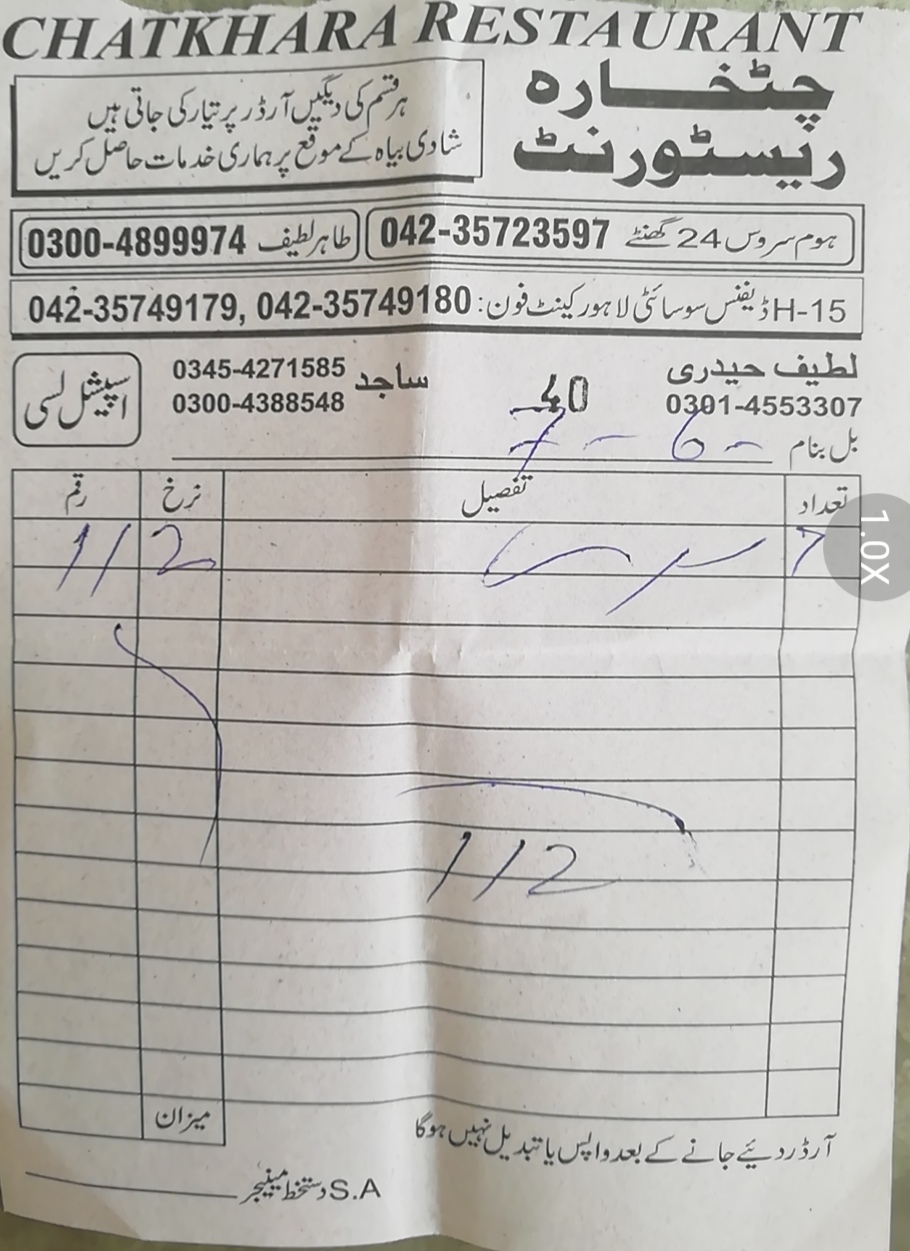 CHATKHARA RESTAURANT
چٹخارہ
ریسٹورنٹ
ہر قسم کی دیگیں آرڈر پر تیار کی جاتی ہیں
شادی بیاہ کے موقع پر ہماری خدمات حاصل کریں
ہوم سروس 24 گھنٹے 042-35723597
طاہر لطیف 0300-4899974
H-15 ڈیفنس سوسائٹی لاہور کینٹ فون: 042-35749179, 042-35749180
لطیف حیدری
0301-4553307
40
ساجد
0345-4271585
0300-4388548
سپیشل لسی
بل بنام
تعداد تفصیل نرخ رقم
112
112
میزان
آرڈر دیئے جانے کے بعد واپس یا تبدیل نہیں ہوگا
S.A دستخط مینیجر
1.0X